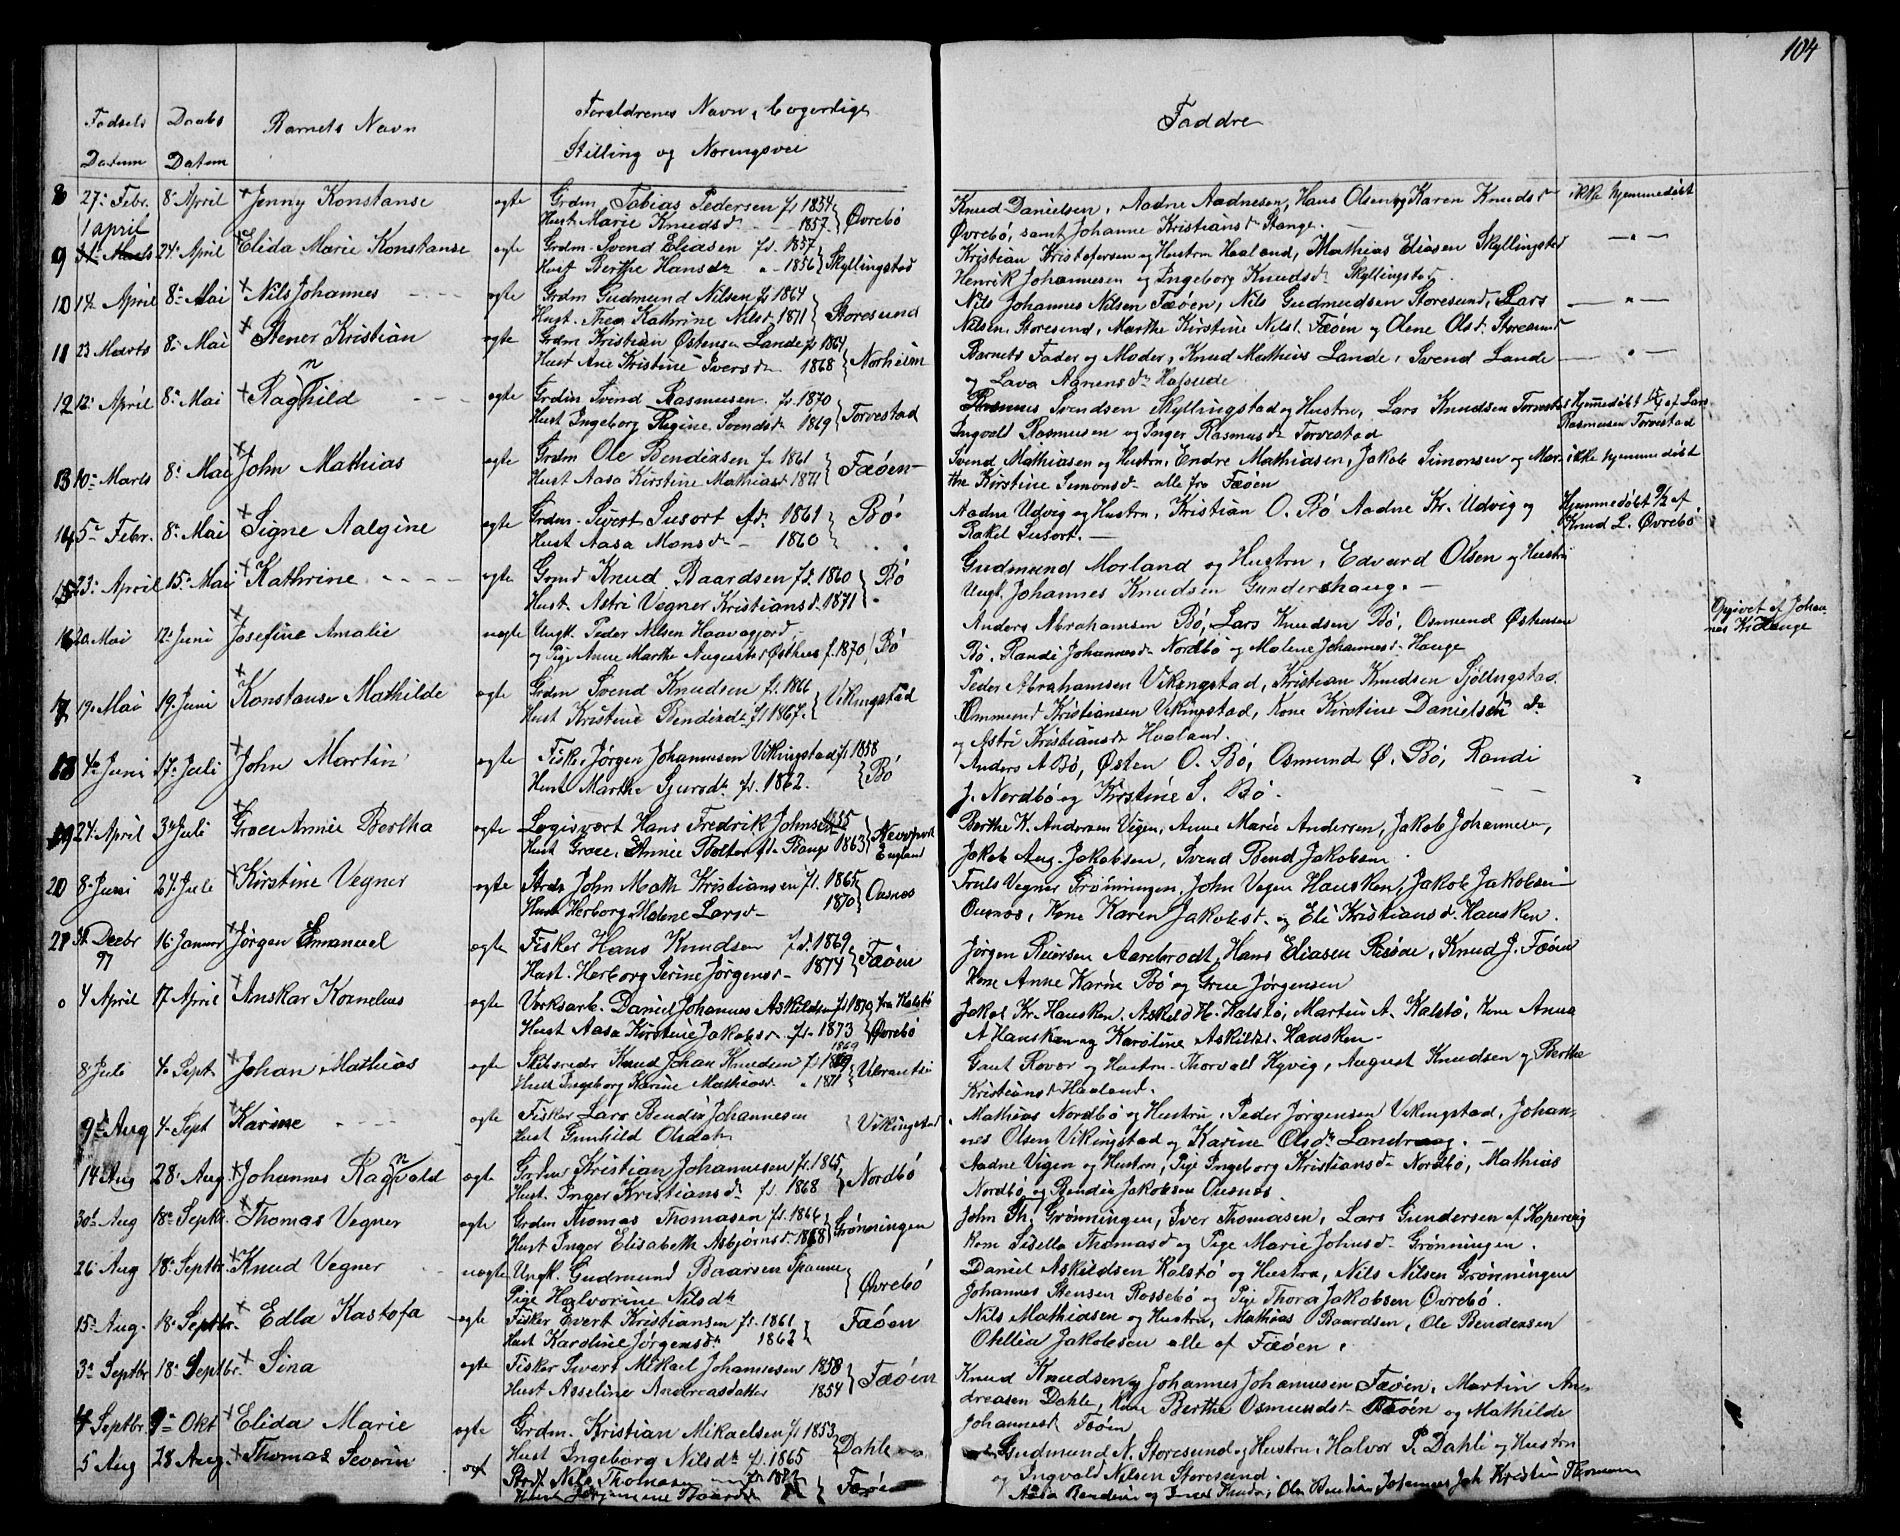 104
Fødsels Daabs Barnets Navn Forældrenes Navn, borgerlige Faddre
Datum Datum Stilling og Næringsvei
8 27. Febr. 8. April Jenny Konstanse ægte Grdm. Tobias Pedersen f. 1854 Knud Danielsen, Aadne Aadnesen, Hans Olsen og Karen Knudsd. ikke hjemmedøbt
Hust. Marie Knudsd. 1857 Øvrebø Øvrebø, samt Johanne Kristiansd. Stange.
1 april
9 24. April Elida Marie Konstanse ægte Grdm. Svend Eliasen f. 1857 Kristian Kristofersen og Hustru Haaland, Mathias Eliasen Skyllingstad — " —
Hust Berthe Hansdr " 1856 Skyllingstad Henrik Johannesen og Ingeborg Knudsdr Skyllingstad.
10 14. April 8. Mai Nils Johannes ægte Grdm Gudmund Nilsen f. 1864 Nils Johannes Nilsen Fæøen, Nils Gudmudsen Storesund, Lars — " —
Hust. Thea Kathrine Nilsd. 1871 Storesund Nilsen, Storesund, Marthe Kirstine Nilsd. Fæøen og Olene Olsd. Storesund
11 23 Marts 8. Mai Stener Kristian ægte Grdm Kristian Østensen Lande f. 1864 Barnets Fader og Moder, Knud Mathias Lande, Svend Lande — " —
Hust Ane Kristine Iversdr 1868 Norheim og Lava
12 12. April 8. Mai Ragnhild ægte Grdm Svend Rasmussen. f. 1870 Rasmus Svendsen Skyllingstad og Hustru, Lars Knudsen Torvestad Hjemmedøbt af Lars
Hust Ingeborg Regine Svendsd. 1869 Torvestad Ingvald Rasmusen og Inger Rasmusdr Torvestad Rasmusen Torvestad
13 10. Marts 8. Mai John Mathias ægte Grdm Ole Bendixsen f. 1861 Svend Mathiasen og Hustru, Endre Mathiasen, Jakob Simonsen og Mar- ikke hjemmedøbt
Hust Aasa Kirstine Mathiasd 1871 Fæøen the Kirstine Simonsdr alle fra Fæøen
14 5. Febr. 8. Mai Signe Aalgine ægte Grdm. Sivert Susort fd. 1861 Bø. Aadne Udvig og Hustru, Kristian O. Bø Aadne Kr. Udvig og Hjemmedøbt af
Hust Aasa Monsdr 1860 Rakel Susort. — Knud L. Øvrebø
15 23. April 15. Mai Kathrine ægte Grmd Knud Baardsen f. 1860 Bø Gudmund Morland og Hustru, Edvard Olsen og Hustru
Hust. Astri Vegner Kristiansd. 1871 Ungk. Johannes Knudsen Gundershaug. —
16 20. Mai 12. Juni Josefine Amalie uægte Ungk. Peder Nilsen Haavagjord, Anders Abrahamsen Bø, Lars Knudsen Bø, Osmund Østensen Opgivet af Johan-
og Pige Anne Marthe Augusta Østhus f. 1870 Bø Bø, Randi Johannesdr Nordbø og Malene Johannesdr Hauge nes K. Hauge
17 19. Mai 19. Juni Konstanse Mathilde ægte Grdm Svend Knudsen f. 1866 Peder Abrahamsen Vikingstad, Kristian Knudsen
Hust Kristine Bendixd f. 1867. Vikingstad Ommund Kristiansen Vikingstad, Kone Kirstine Danielsen dr
og Astri Kristiansdr Haaland.
18 4. Juni 17. Juli John Martin ægte Fisk. Jørgen Johannesen Vikingstad f. 1858 Anders A Bø, Østen O. Bø, Osmund Ø. Bø, Randi
Hust Marthe Sjursdr f. 1862. Bø J. Nordbø og Kirstine S. Bø.
19 24. April 3. Juli Grace Annie Bertha ægte Logisvært Hans Fredrik Johnsen 1855 Berthe K. Andersen Vigen, Anne Marie Andersen, Jakob Johannesen,
Hust Grace Annie 1863 England Jakob Aug. Jakobsen, Svend Bend Jakobsen.
20 8. Juni 24. Juli Kirstine Vegner ægte Strds John Math Kristiansen f. 1865 Truls Vegner Grønningen, John Vegen Hausken, Jakob Jakobsen
Hust Herborg Malene Larsd 1870 Ousnes Ousnes, Kone Karen Jakobsd. og Eli Kristiansd. Hausken.
21 Decbr 16 Januar Jørgen Emanuel ægte Fisker Hans Knudsen f. 1869 Jørgen Reiersen Aarebrodt, Hans Eliasen Risøen, Knud J. Fæøen
97 Hust. Herborg Serine Jørgensd 1874 Fæøen Kone Anne Karine Bø og Grue Jørgensen
0 4 April 17 April Anskar Kornelius ægte Værksarb. Daniel Johannes Askildsen f. 1870 fra Kalstø Jakob Kr. Hausken, Askild H. Kalstø, Martin A. Kalstø, Kone Anna
Hust Aasa Kirstine Jakobsd. f. 1873 Øvrebø A Hausken og Karoline Askildsd. Hausken.
8 Juli 4. Sept Johan Mathias ægte Skibsreder Knud Johan Knudsen f. 1869 Gaut Rovær og Hustru. Thorvald Hyvig, August Knudsen og Berthe
Hust Ingeborg Karine Mathiasd " 1871 Kristiansd. Haaland.
9. Aug 4. Sept Karine ægte Fisker Lars Bendix Johannesen Vikingstad Mathias Nordbø og Hustru, Peder Jørgensen Vikingstad, Johan-
Hust Gunhild Olsdatr nes Olsen Vikingstad og Karine Olsdr Landraag. —
14 Aug 28. Aug Johannes Ragnvald ægte Grdm Kristian Johannesen f. 1865 Aadne Vigen og Hustru, Pige Ingeborg Kristiansdr Nordbø, Mathias
Hust. Inger Kristiansdr f. 1868 Nordbø Nordbø og Bendix Jakobsen Ousnes
30. Aug 18. Septbr. Thomas Vegner ægte Grdm Thomas Thomasen f. 1866, John Th. Grønningen, Iver Thomasen, Lars Gundersen af Kopervig
Hust Inger Elisabeth Asbjørnsd. 1868 Grønningen Kone Sisella Thomasd og Pige Marie Johnsd. Grønningen.
26 Aug 18. Septbr. Knud Vegner uægte Ungk. Gudmund Baarsen Spanne Daniel Askildsen Kalstø og Hustru, Nils Nilsen Grønningen
Pige Halvorine Nilsdr Øvrebø Johannes Stensen Rossebø og Pige Thora Jakobsen Øvrebø.
15. Aug. 18. Septbr. Edla Kastofa ægte Fisker Evert Kristiansen f. 1861 Fæøen Nils Mathiasen og Hustru, Mathias Baardsen, Ole Bendixsen
Hust Karoline Jørgensdr 1862 Othilia Jakobsen alle af Fæøen.
3. Septbr 18. Septbr. Sina ægte Fisker Sivert Mikael Johannesen 1858 Knud Knudsen og Johannes Johannesen Fæøen, Martin An-
Hust Asseline Andreasdatter 1854 Fæøen dreasen Dahle, Kone Berthe Osmundsd. Fæøen og Mathilde
Johannesd. Fæøen
4 Septbr 9. Okt Elida Marie ægte Grdm. Kristian Mikaelsen f. 1853 Gudmund N. Storesund og Hustru, Halvor P. Dahle og Hustru
Hust Ingeborg Nilsdr f. 1865 Dahle og Ingvald Nilsen Storesund.
5 Aug 28 Aug. Thomas Severin Nils Thomasen Fæøen Aasa Bendixen og Knuds, Ole Bendixen, Johannes Joh Kristin Thomasen